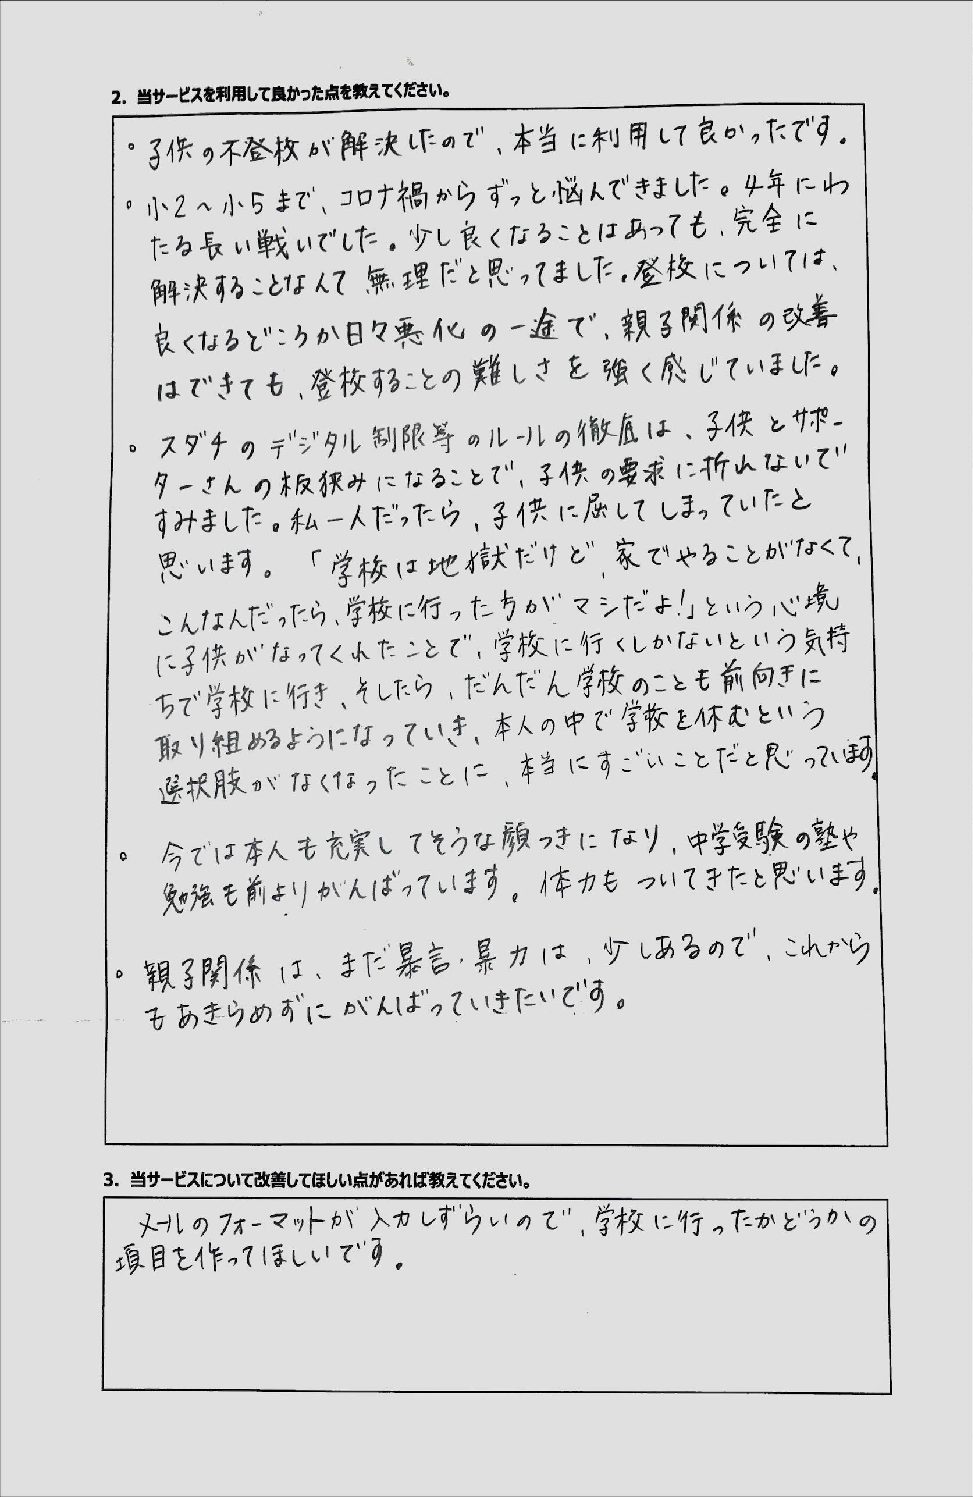 2. 当サービスを利用して良かった点を教えてください。
。子供の不登校が解決したので、本当に利用して良かったです。
。小2～小5まで、コロナ禍からずっと悩んできました。4年にわ
たる長い戦いでした。少し良くなることはあっても、完全に
解決することなんて無理だと思ってました。登校については、
良くなるどころか日々悪化の一途で、親子関係の改善
はできても、登校することの難しさを強く感じていました。
。スダチのデジタル制限等のルールの徹底は、子供とサポー
ターさんの板狭みになることで、子供の要求に折れないで
すみました。私一人だったら、子供に屈してしまっていたと
思います。「学校は地獄だけど、家でやることがなくて、
こんなんだったら、学校に行った方がマシだよ!」という心境
に子供がなってくれたことで、学校に行くしかないという気持
ちで学校に行き、そしたら、だんだん学校のことも前向きに
取り組めるようになっていき、本人の中で学校を休むという
選択肢がなくなったことに、本当にすごいことだと思っています。
。今では本人も充実してそうな顔つきになり、中学受験の塾や
勉強も前よりがんばっています。体力もついてきたと思います。
。親子関係は、まだ暴言・暴力は、少しあるので、これから
もあきらめずにがんばっていきたいです。
3. 当サービスについて改善してほしい点があれば教えてください。
メールのフォーマットが入力しずらいので、学校に行ったかどうかの
項目を作ってほしいです。